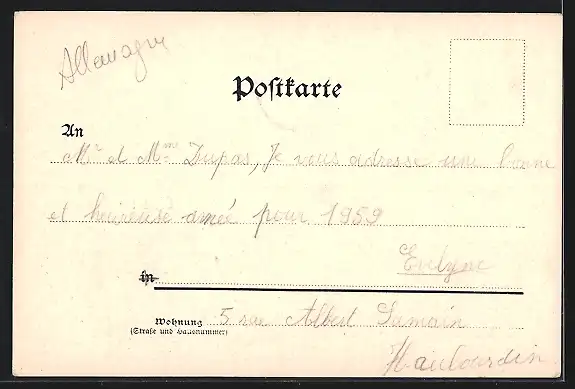 Allemagne
Postkarte
An
Mr et Mme Dupas, Je vous adresse une bonne
et heureuse année pour 1959
Evelyne
in
Wohnung 5 rue Albert Samain
(Straße und Hausnummer)
Haubourdin